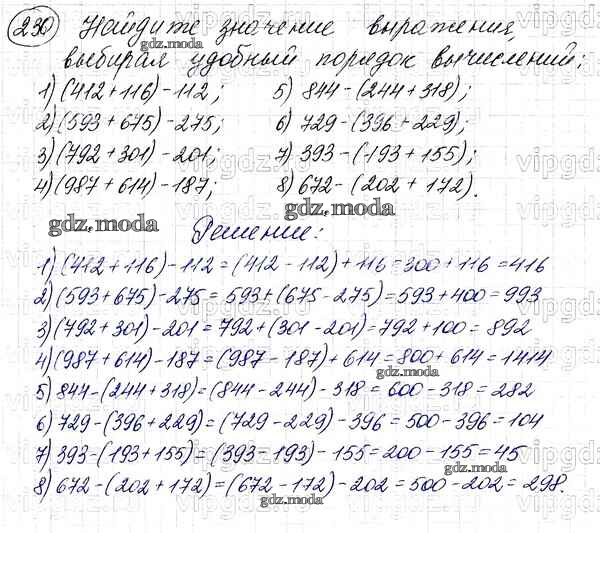 230 Найдите значение выражения,
выбирая удобный порядок вычислений;
1) (412+116)-112; 5) 844-(244+318);
2) (593+675)-275; 6) 729-(396+229);
3) (792+301)-201; 7) 393-(193+155);
4) (987+614)-187; 8) 672-(202+172).
Решение:
1) (412+116)-112=(412-112)+116=300+116=416
2) (593+675)-275=593+(675-275)=593+400=993
3) (792+301)-201=792+(301-201)=792+100=892
4) (987+614)-187=(987-187)+614=800+614=1414
5) 844-(244+318)=(844-244)-318=600-318=282
6) 729-(396+229)=(729-229)-396=500-396=104
7) 393-(193+155)=(393-193)-155=200-155=45
8) 672-(202+172)=(672-172)-202=500-202=298.
gdz.moda
gdz.moda
gdz.moda
gdz.moda
gdz.moda
gdz.moda
gdz.moda